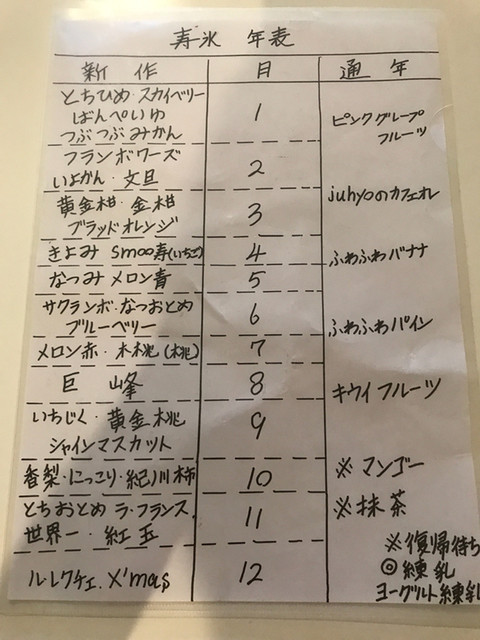 寿氷 年表
新作 月 通年
とちひめ・スカイベリー
ばんぺいゆ
つぶつぶみかん
1
フランボワーズ
いよかん・文旦
2
黄金柑・金柑
ブラッドオレンジ
3
きよみ smoo寿(いちご)
4
なつみ メロン青
5
サクランボ・なつおとめ
ブルーベリー
6
メロン赤・水桃(桃)
7
巨峰
8
いちじく・黄金桃
シャインマスカット
9
香梨・にっこり・紀ノ川柿
10
とちおとめ ラ・フランス
世界一・紅玉
11
ル レクチェ. X'mas
12
ピンクグループ
フルーツ
juhyoのカフェオレ
ふわふわバナナ
ふわふわパイン
キウイフルーツ
※マンゴー
※抹茶
※復帰待ち
◎練乳
ヨーグルト練乳